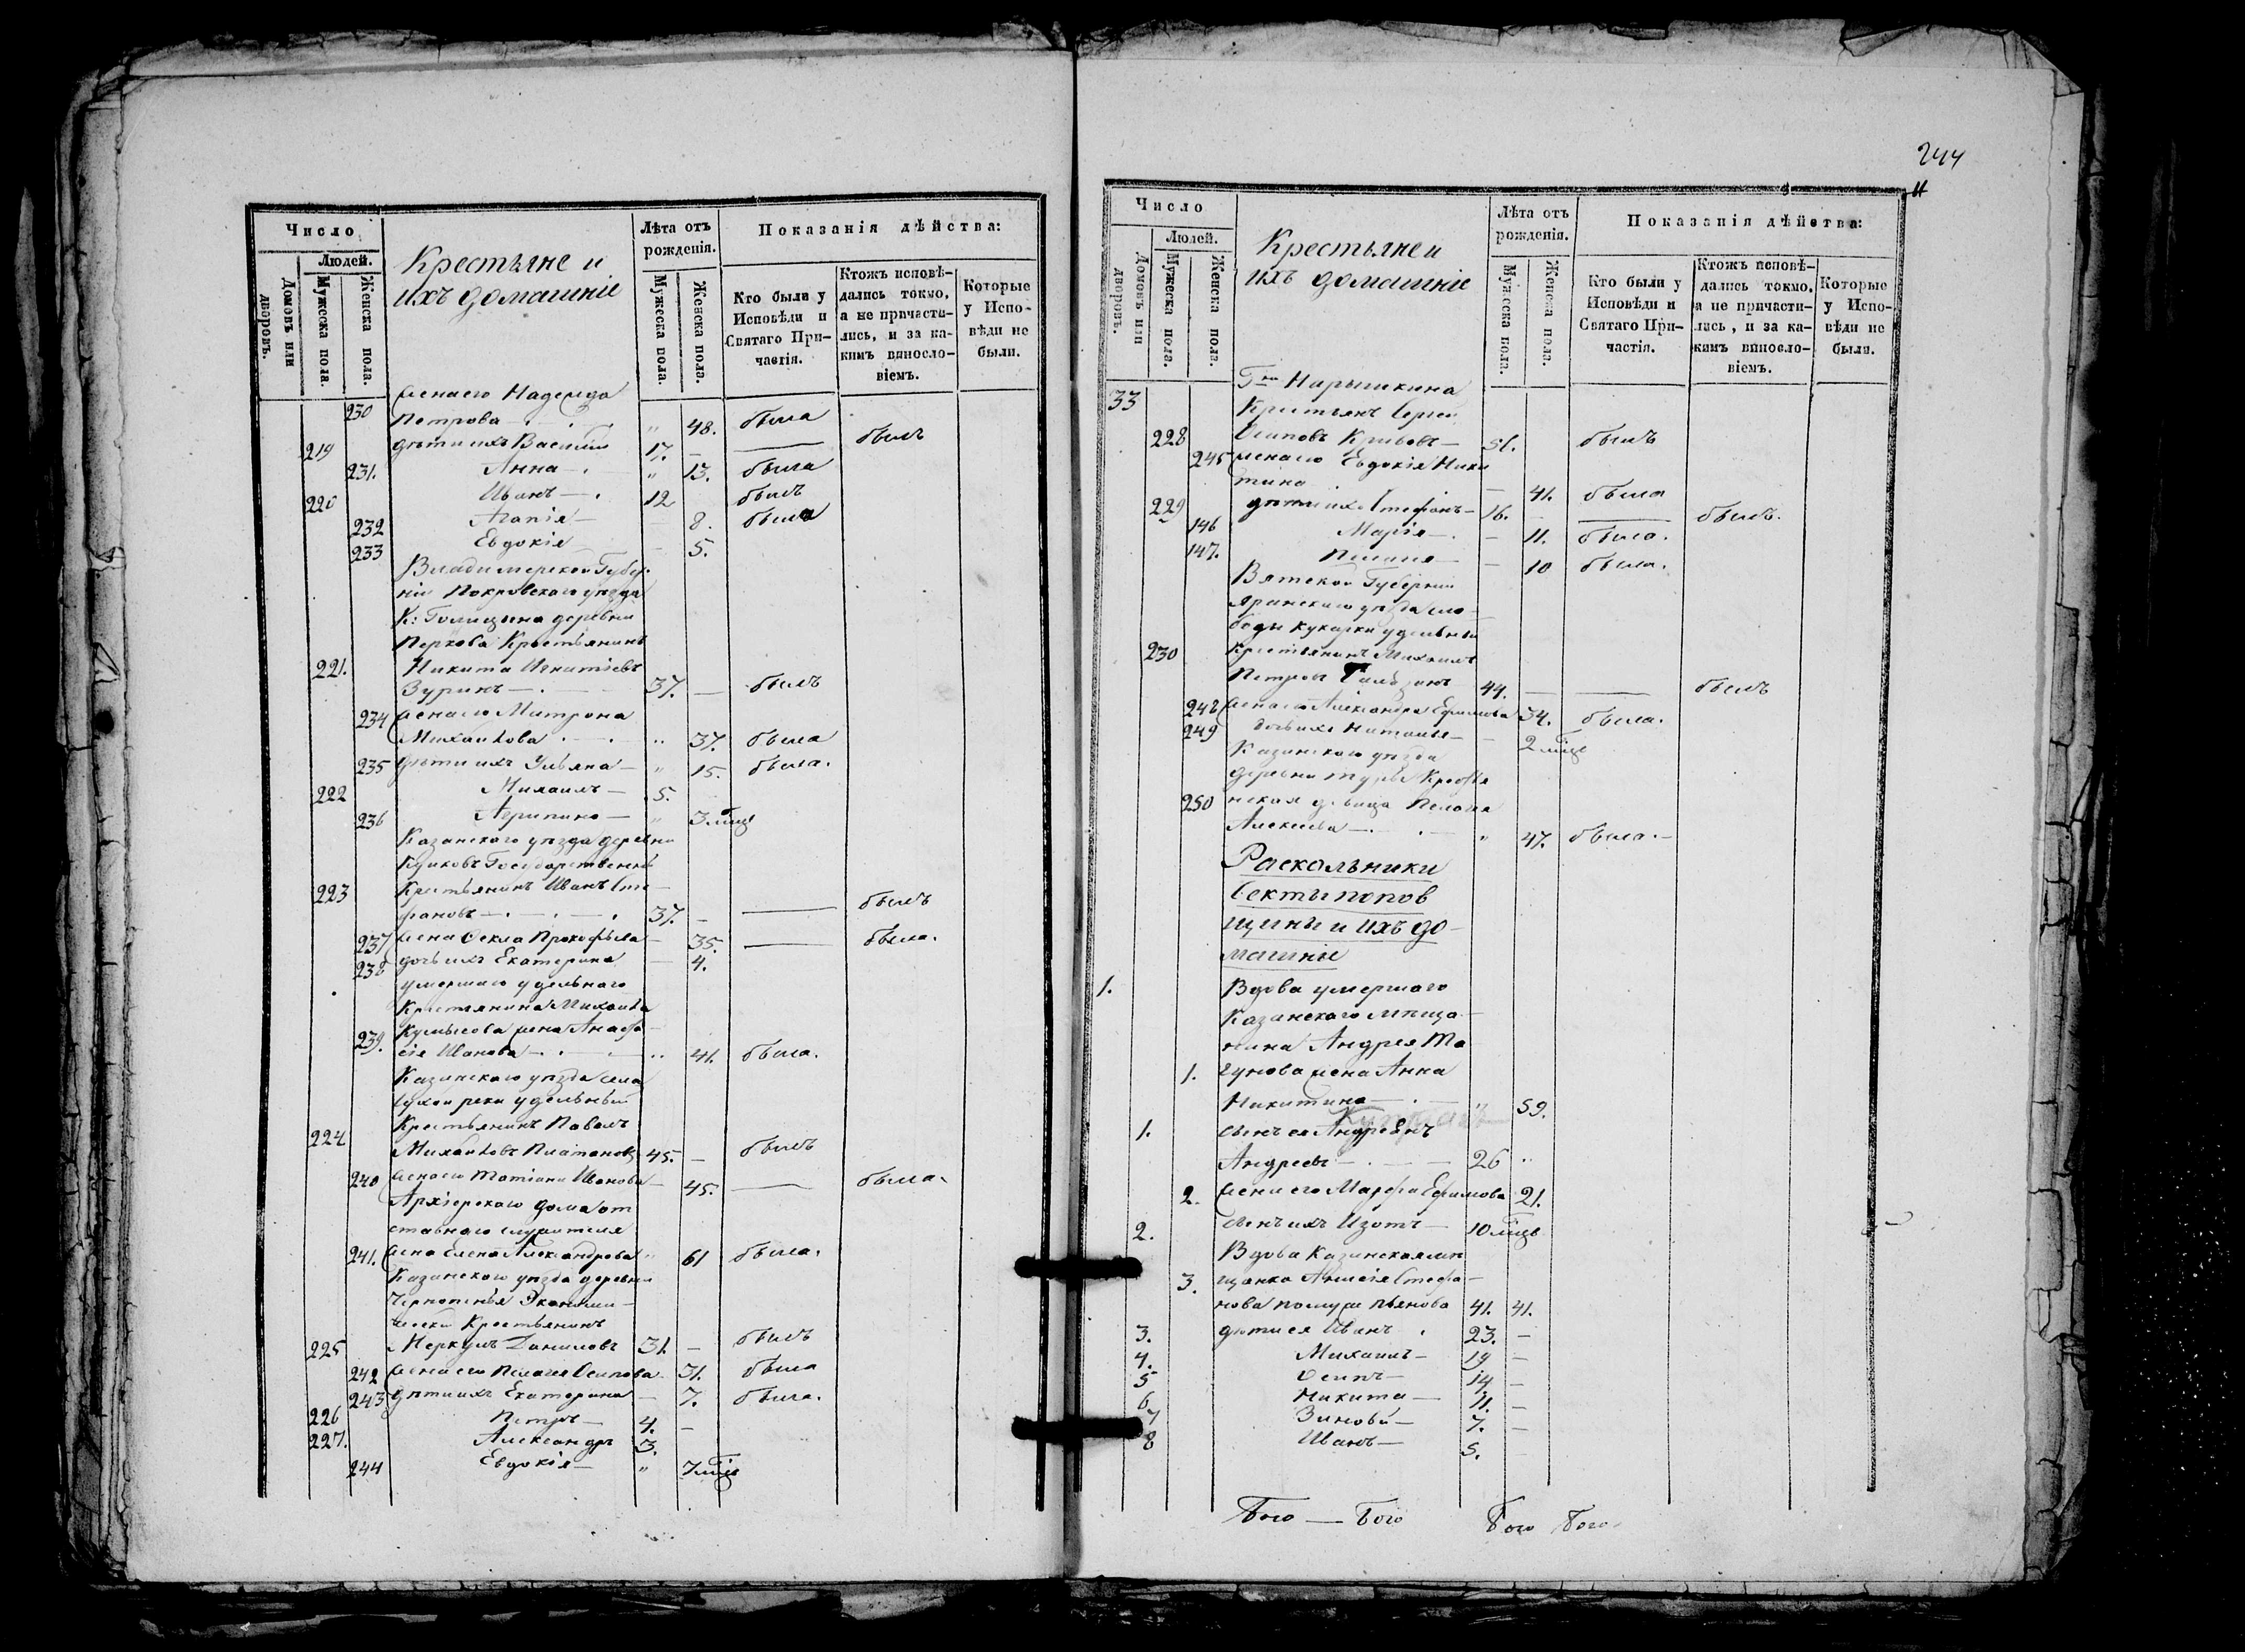 244
Число
Людей.
Домовъ или дворовъ.
Мужеска пола.
Женска пола.
Крестьяне и
ихъ домашніе
Лѣта отъ
рожденія.
Мужеска пола.
Женска пола.
Показанія дѣйства:
Кто были у
Исповѣди и
Святаго При-
частія.
Ктожъ исповѣ-
дались токмо,
а не причасти-
лись, и за ка-
кимъ винословіемъ.
Которые
у Испо-
вѣди не
были.
жена его Надежда
230 Петрова 48. была
219 дѣти ихъ Василій 17. былъ
231. Анна 13. была
220 Иванъ 12 былъ
232 Агапія 8. была
233 Евдокія 5.
Владимерской Губер-
ніи Покровскаго уѣзда
К: Голицына деревни
Перхова Крестьянинъ
221. Никита Игнатіевъ
Зуринъ 37. былъ
234 жена его Матрона
Михайлова 37. была
235 дѣти ихъ Ульяна 15. была.
222 Михаилъ 5.
236 Агрипина 3 мѣс
Казанскаго уѣзда деревни
Государственный
223 Крестьянинъ Иванъ Сте-
фановъ 37. былъ
237 жена Ѳекла Прокофьева 35. была.
238 дочь ихъ Екатерина 4.
умершаго удельнаго
Крестьянина Михаила
239. жена Анаста-
сія Иванова 41. была.
Казанскаго уѣзда села
Сухой реки удельный
Крестьянинъ Павелъ
224 Михайловъ Платановъ 45. былъ
240 жена его Татіана Иванова 45. была.
Архіерскаго дома от
ставнаго служителя
241. жена Елена Александрова 61 была.
Казанскаго уѣзда деревни
Черпопенья Экономи-
ческій Крестьянинъ
225 Меркулъ Даниловъ 31. былъ
242 жена его Пелагея Осипова 31. была
243 дѣти ихъ Екатерина 7. была.
226 Петръ 4.
227. Александръ 3.
244 Евдокія 7 мѣс
Число
Людей.
Домовъ или дворовъ.
Мужеска пола.
Женска пола.
Крестьяне и
ихъ домашніе
Лѣта отъ
рожденія.
Мужеска пола.
Женска пола.
Показанія дѣйства:
Кто были у
Исповѣди и
Святаго При-
частія.
Ктожъ исповѣ-
дались токмо,
а не причасти-
лись, и за ка-
кимъ винословіемъ.
Которые
у Испо-
вѣди не
были.
Г-на Нарышкина
33 Крестьянъ Сергей
228 Осиповъ Кривовъ 51. былъ
245 жена его Евдокія Ники
тина 41. была
229 дѣти ихъ Стефанъ 16. былъ.
146 Марія 11. была.
147. 10 была.
Вятской Губерніи
Яранскаго уѣзда сло-
боды Кукарки удельный
230 Крестьянинъ Михаилъ
Петровъ 44. былъ
248 жена его Александра Ефимова 34. была.
249 дочь ихъ Наталья 2 мѣс
Казанскаго уѣзда
деревни Туры Кресть
250 нская дѣвица Пелагея
Алексеева 47. была.
Раскольники
Секты попов
щины и ихъ до-
машніе
1. Вдова умершаго
Казанскаго мѣща-
нина Андрея
1. жена Анна
Никитина 59.
1. сынъ ея Андреянъ
Андреевъ 26
2. жена его Марфа Ефимова 21.
2. сынъ ихъ Изотъ 10 мѣс
Вдова Казанская мѣ
3. щанка Анисія Стефа-
нова по мужѣ Пьянова 41. 41.
3. дѣти ея Иванъ 23.
4. Михаилъ 19
5 Осипъ 14
6 Никита 11.
7 Зиновій 7.
8 Иванъ 5.